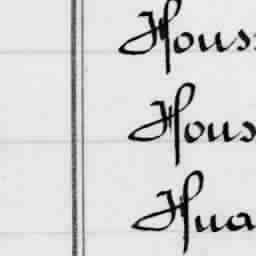 Hous
Hous
Hua